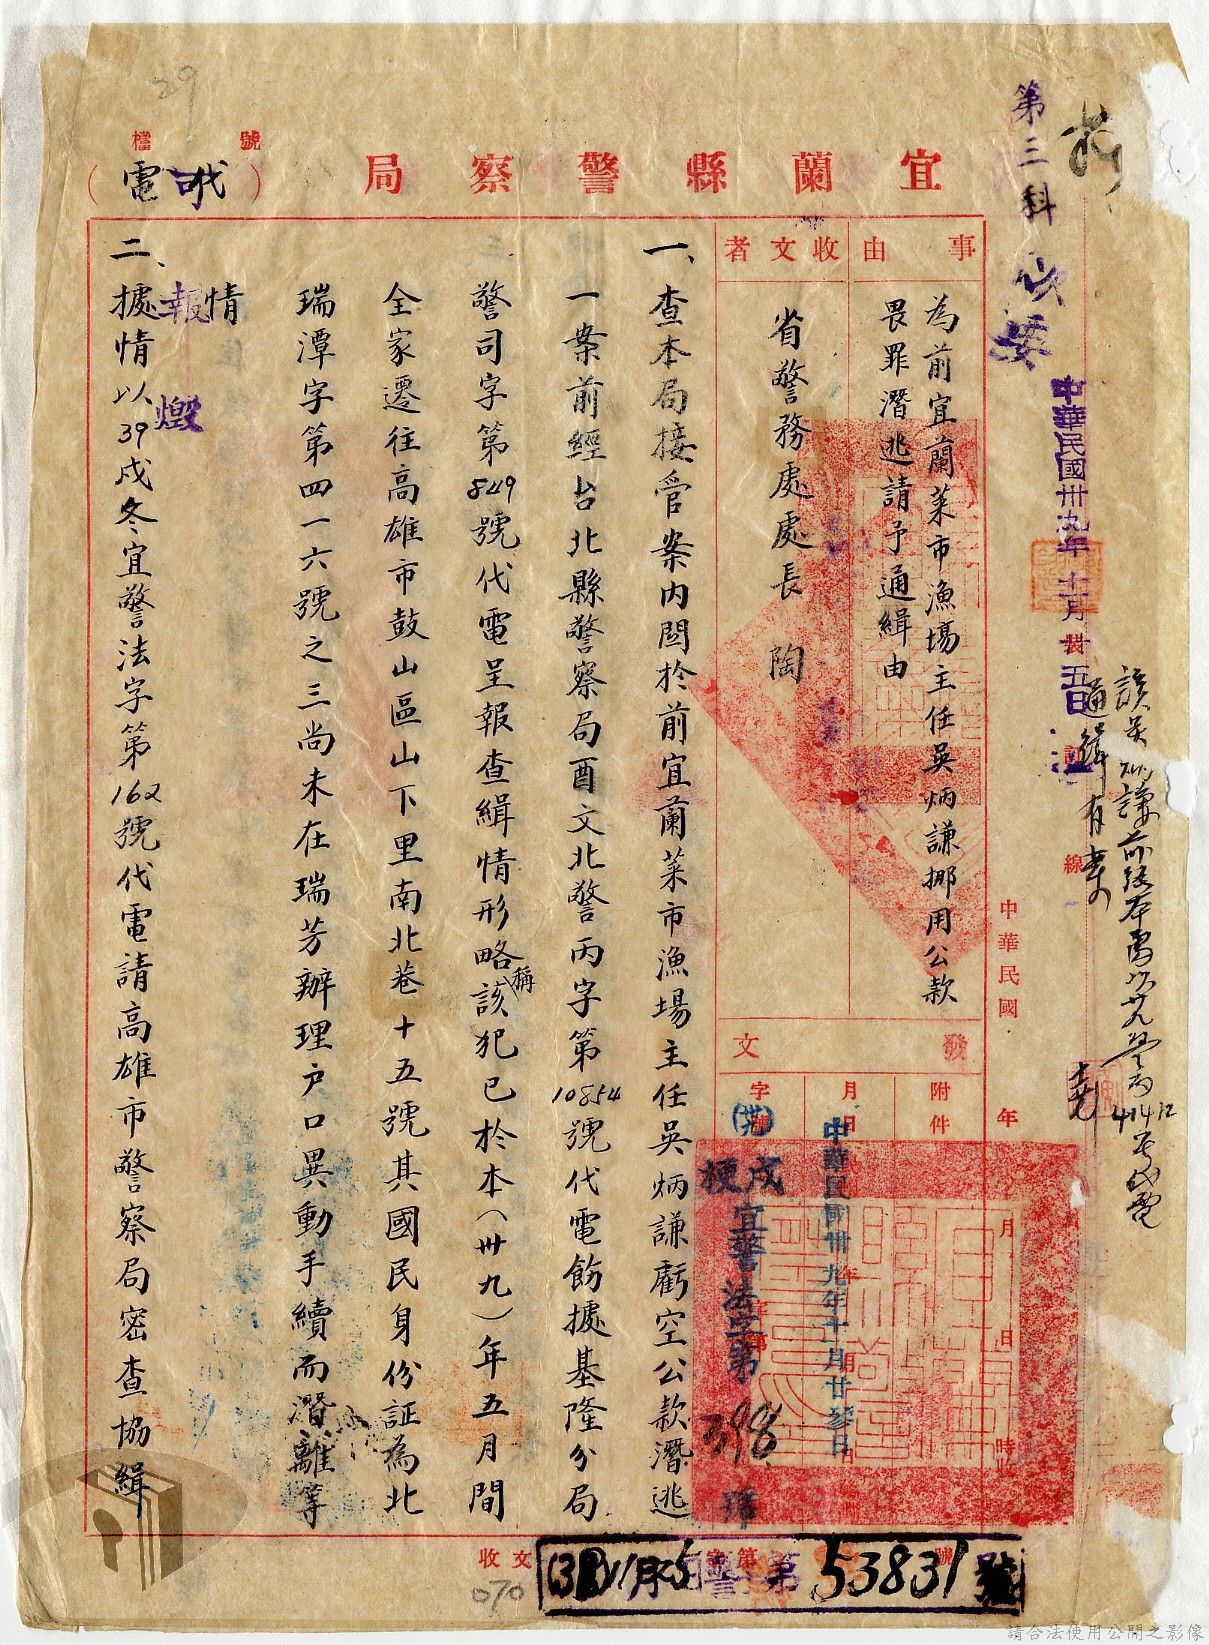 宜蘭縣警察局
代電
檔號
第三科
中華民國卅九年十一月廿五日
該吳炳謙前經本處以卅九警丙41412号代電
通緝有案
事由
為前宜蘭菜市漁場主任吳炳謙挪用公款
畏罪潛逃請予通緝由
收文者
省警務處處長 陶
中華民國 年 月 日 時
發文
附件
月日
中華民國卅九年十一月廿參日
字號
(卅九)戌梗宜警法字第398號
一、查本局接管案內關於前宜蘭菜市漁場主任吳炳謙虧空公款潛逃
一案前經台北縣警察局酉文北警丙字第10854號代電飭據基隆分局
警司字第849號代電呈報查緝情形略稱該犯已於本(卅九)年五月間
全家遷往高雄市鼓山區山下里南北巷十五號其國民身份証為北
瑞潭字第四一六號之三尚未在瑞芳辦理户口異動手續而潛離等
情
報
二、據情以39戌冬宜警法字第162號代電請高雄市警察局密查協緝
裝
線
收文 字第 號
警 第53831號
29
070
請合法使用公開之影像